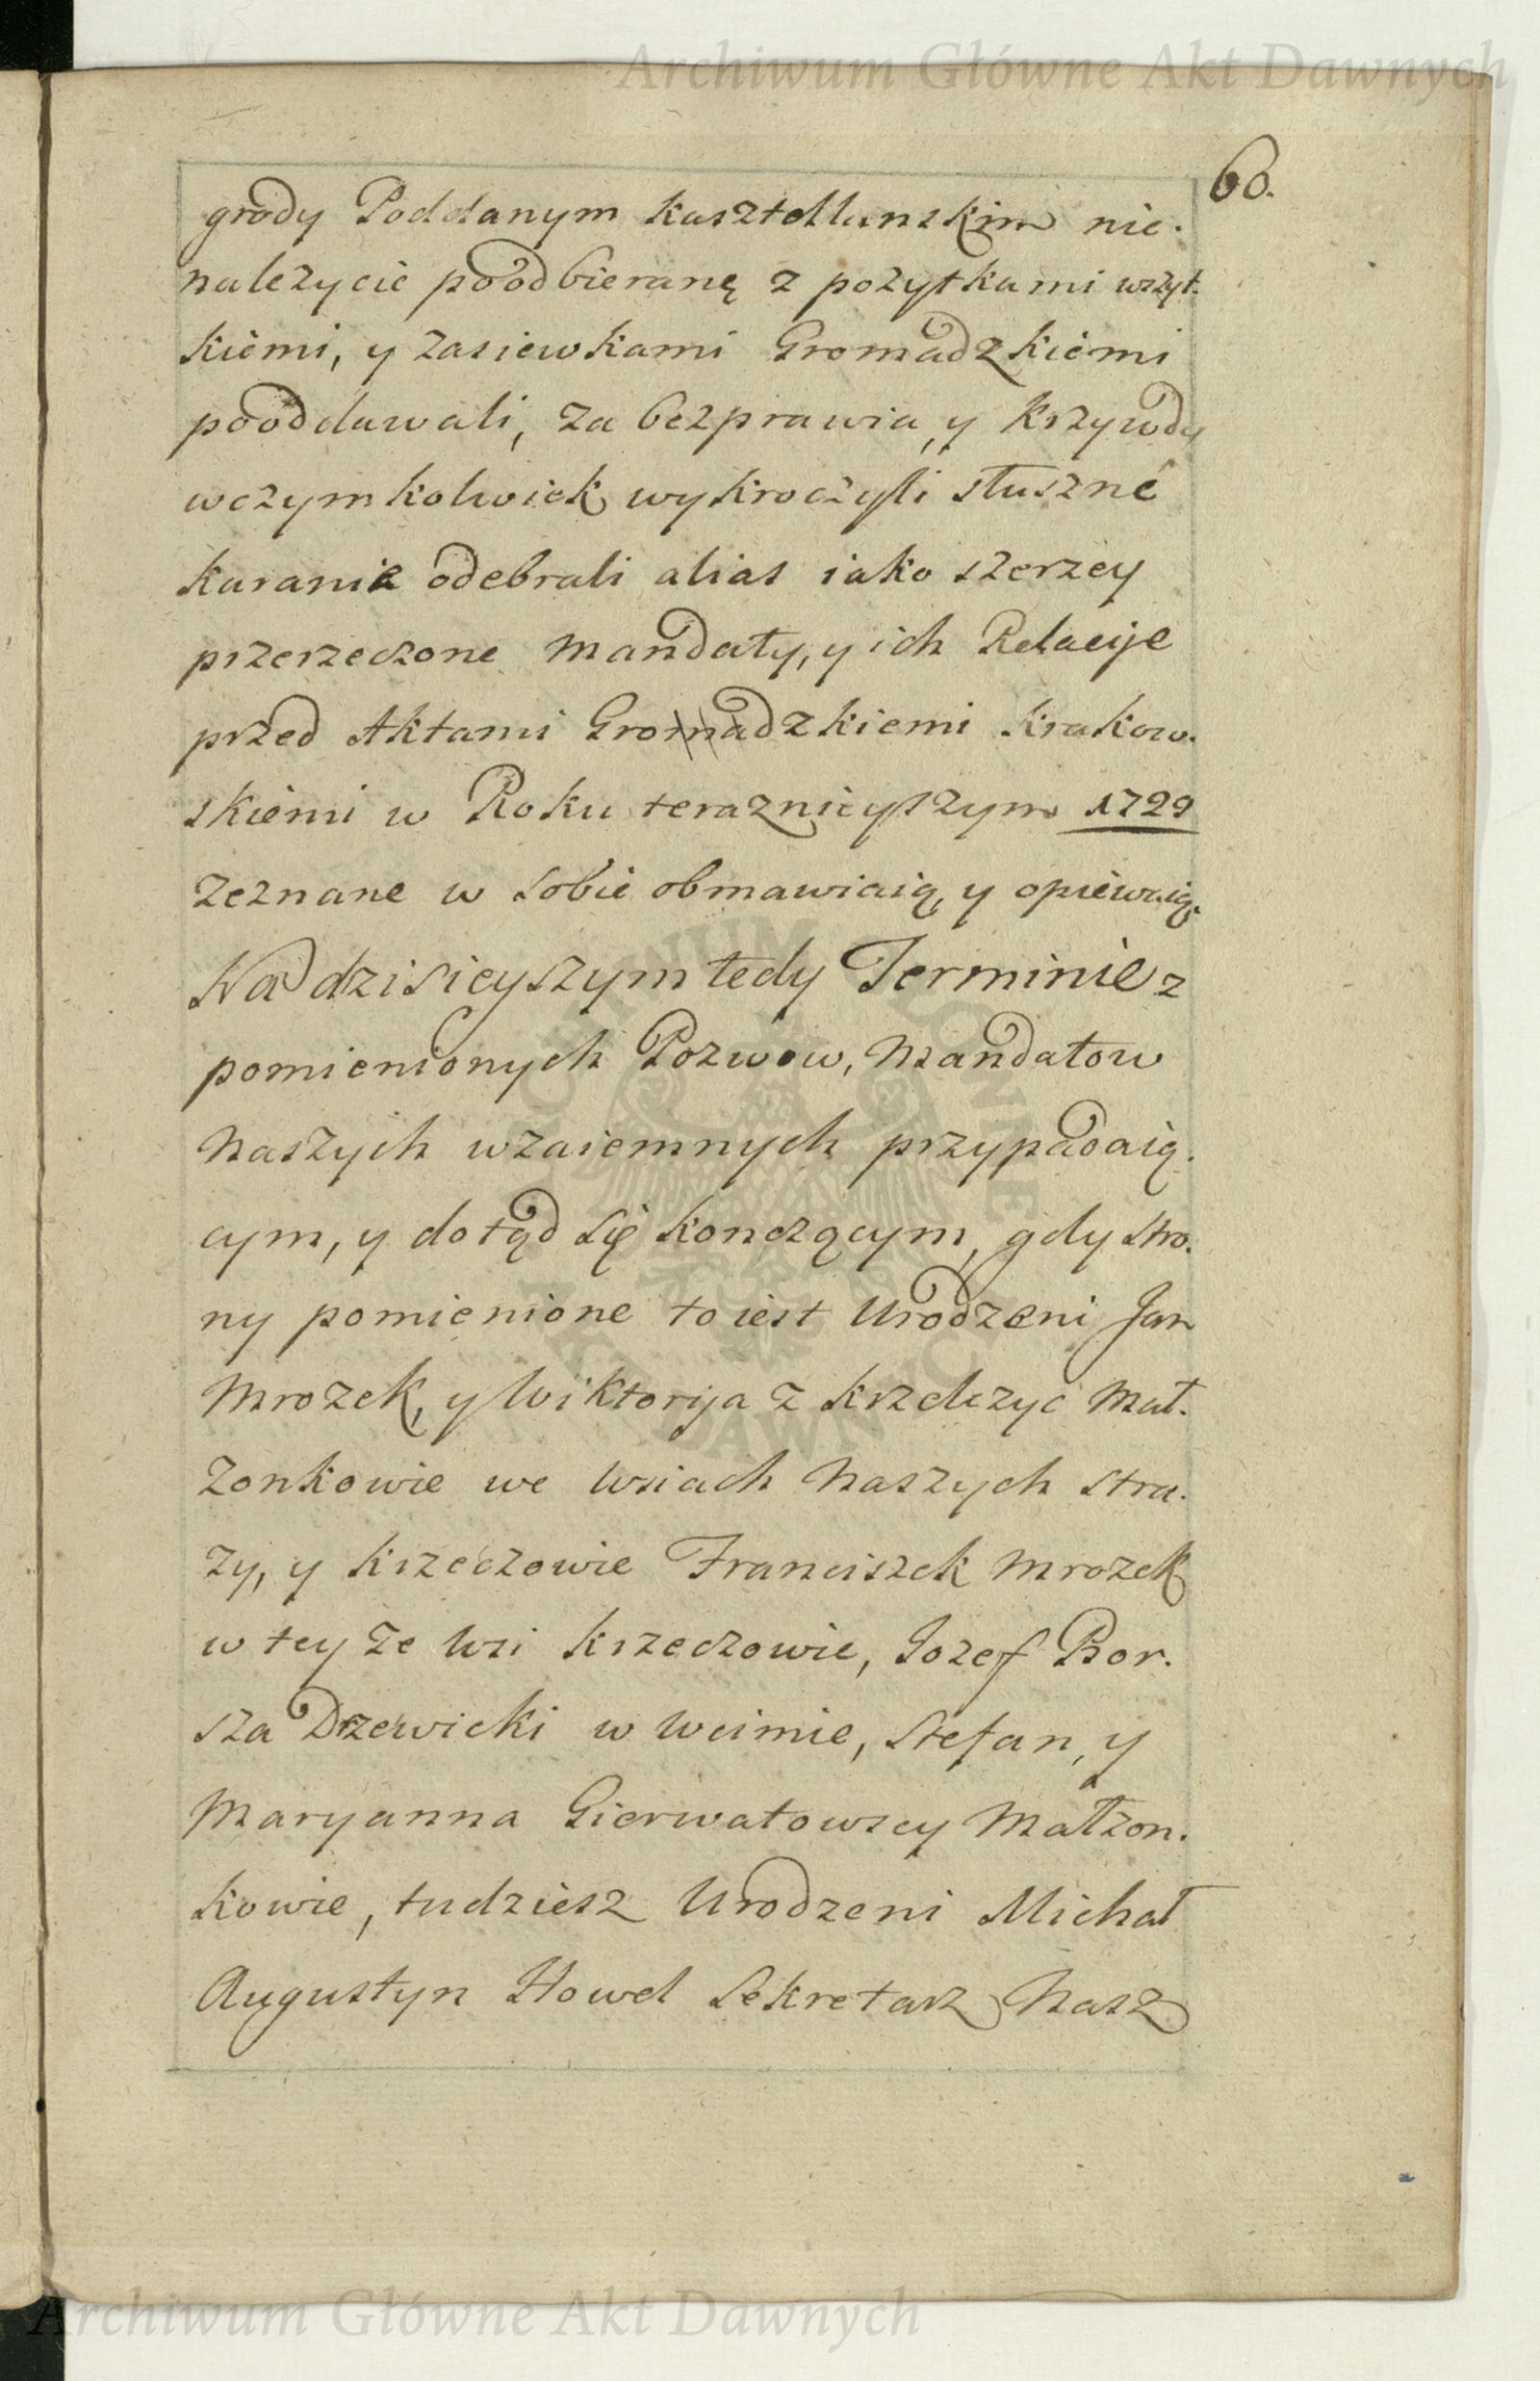 Archiwum Główne Akt Dawnych
60.
grody Poddanym kasztellanskim nie.
nalezycie poodbieranę z pozytkami wszyt.
kiemi, y zasiewkami Gromadzkiemi
pooddawali, za bezprawia, y krzywdy
wczymkolwiek wykroczyli słuszne
karanie odebrali alias iako szerzey
przerzeczone mandaty, y ich Relacije
przed Aktami Gromadzkiemi krakow.
skiemi w Roku teraznieyszym 1729
zeznane w sobie obmawiaią, y opiewaią.
Na dzisieyszym tedy Terminie z
pomienionych Pozwow, Mandatow
Naszych wzaiemnych przypadaią.
cym, y dotąd się konczącym, gdy stro.
ny pomienione to iest Urodzeni Jan
Mrozek, y Wiktorija z krzelczyc Mał.
zonkowie we wsiach Naszych Stra.
zy, y krzeczowie Franciszek Mrozek
w tey ze wsi krzeczowie, Jozef Bor.
sza Drzewicki w Weimie, Stefan, y
Maryanna Gierwatowscy Małzon.
kowie, tudziesz Urodzeni Michał
Augustyn Howel Sekretarz Nasz
ARCHIWUM GŁÓWNE AKT DAWNYCH
Archiwum Główne Akt Dawnych